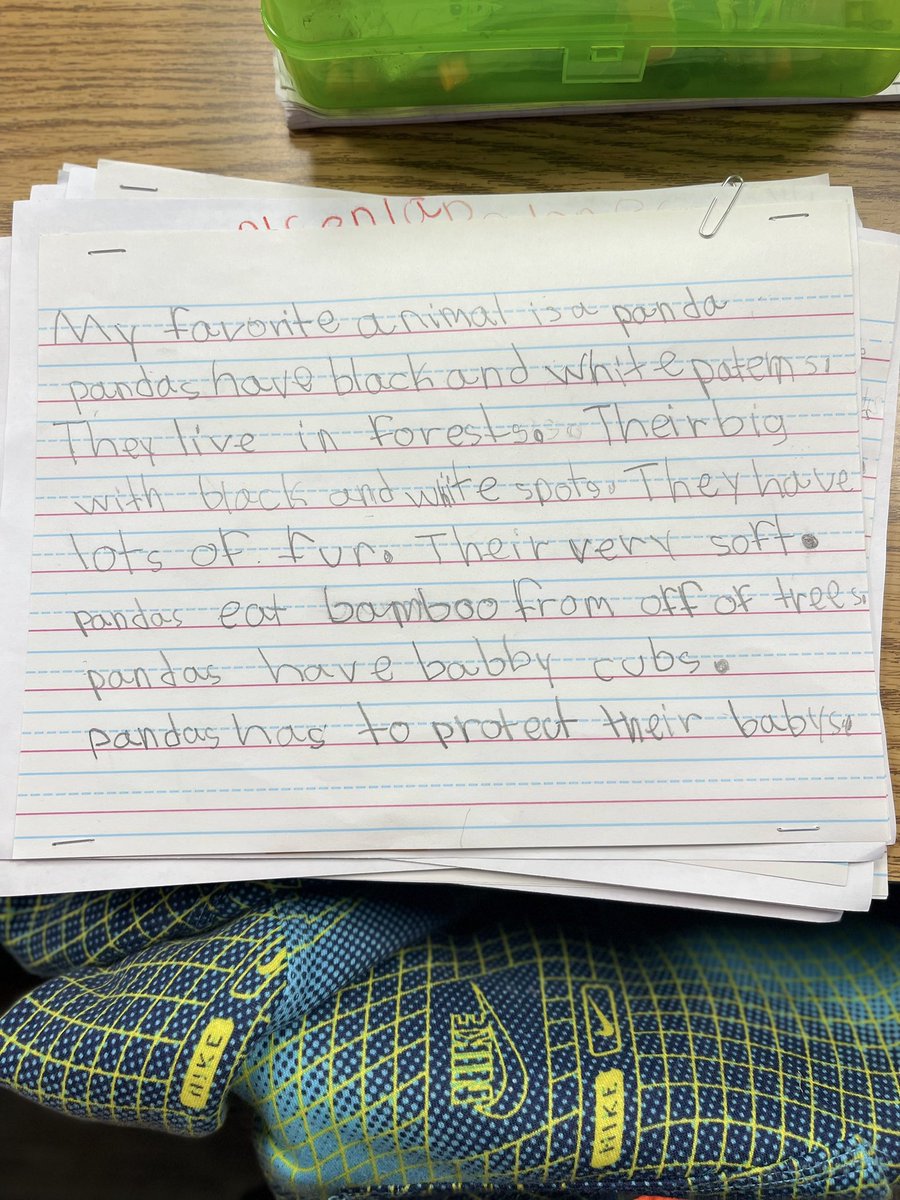 My favorite animal is a panda
pandas have black and white paterns.
They live in forests. Their big
with black and white spots. They have
lots of fur. Their very soft.
pandas eat bamboo from off of trees.
pandas have babby cubs.
pandas has to protect their babys.
NIKE
NIKE
NIKE